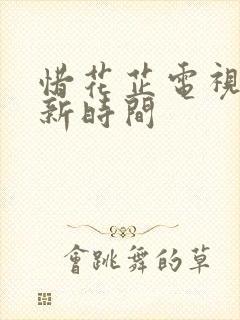 惜花芷電視
新時間
會跳舞的草